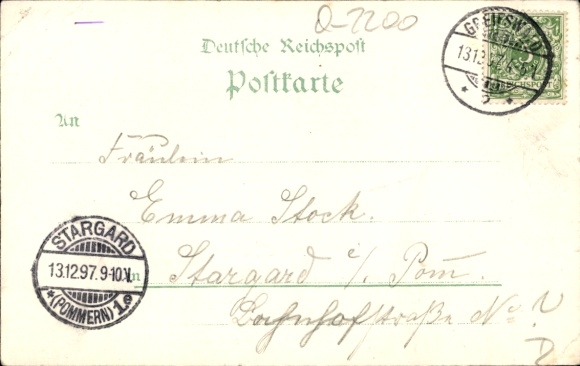 O-2200
Deutsche Reichspost
Postkarte
GREIFSWALD
13.12.97
An
Fräulein
Emma Stock.
STARGARD
13.12.97. 9-10.V.
* (POMMERN) 1e
in Stargard i/ Pom.
Bahnhofstraße No